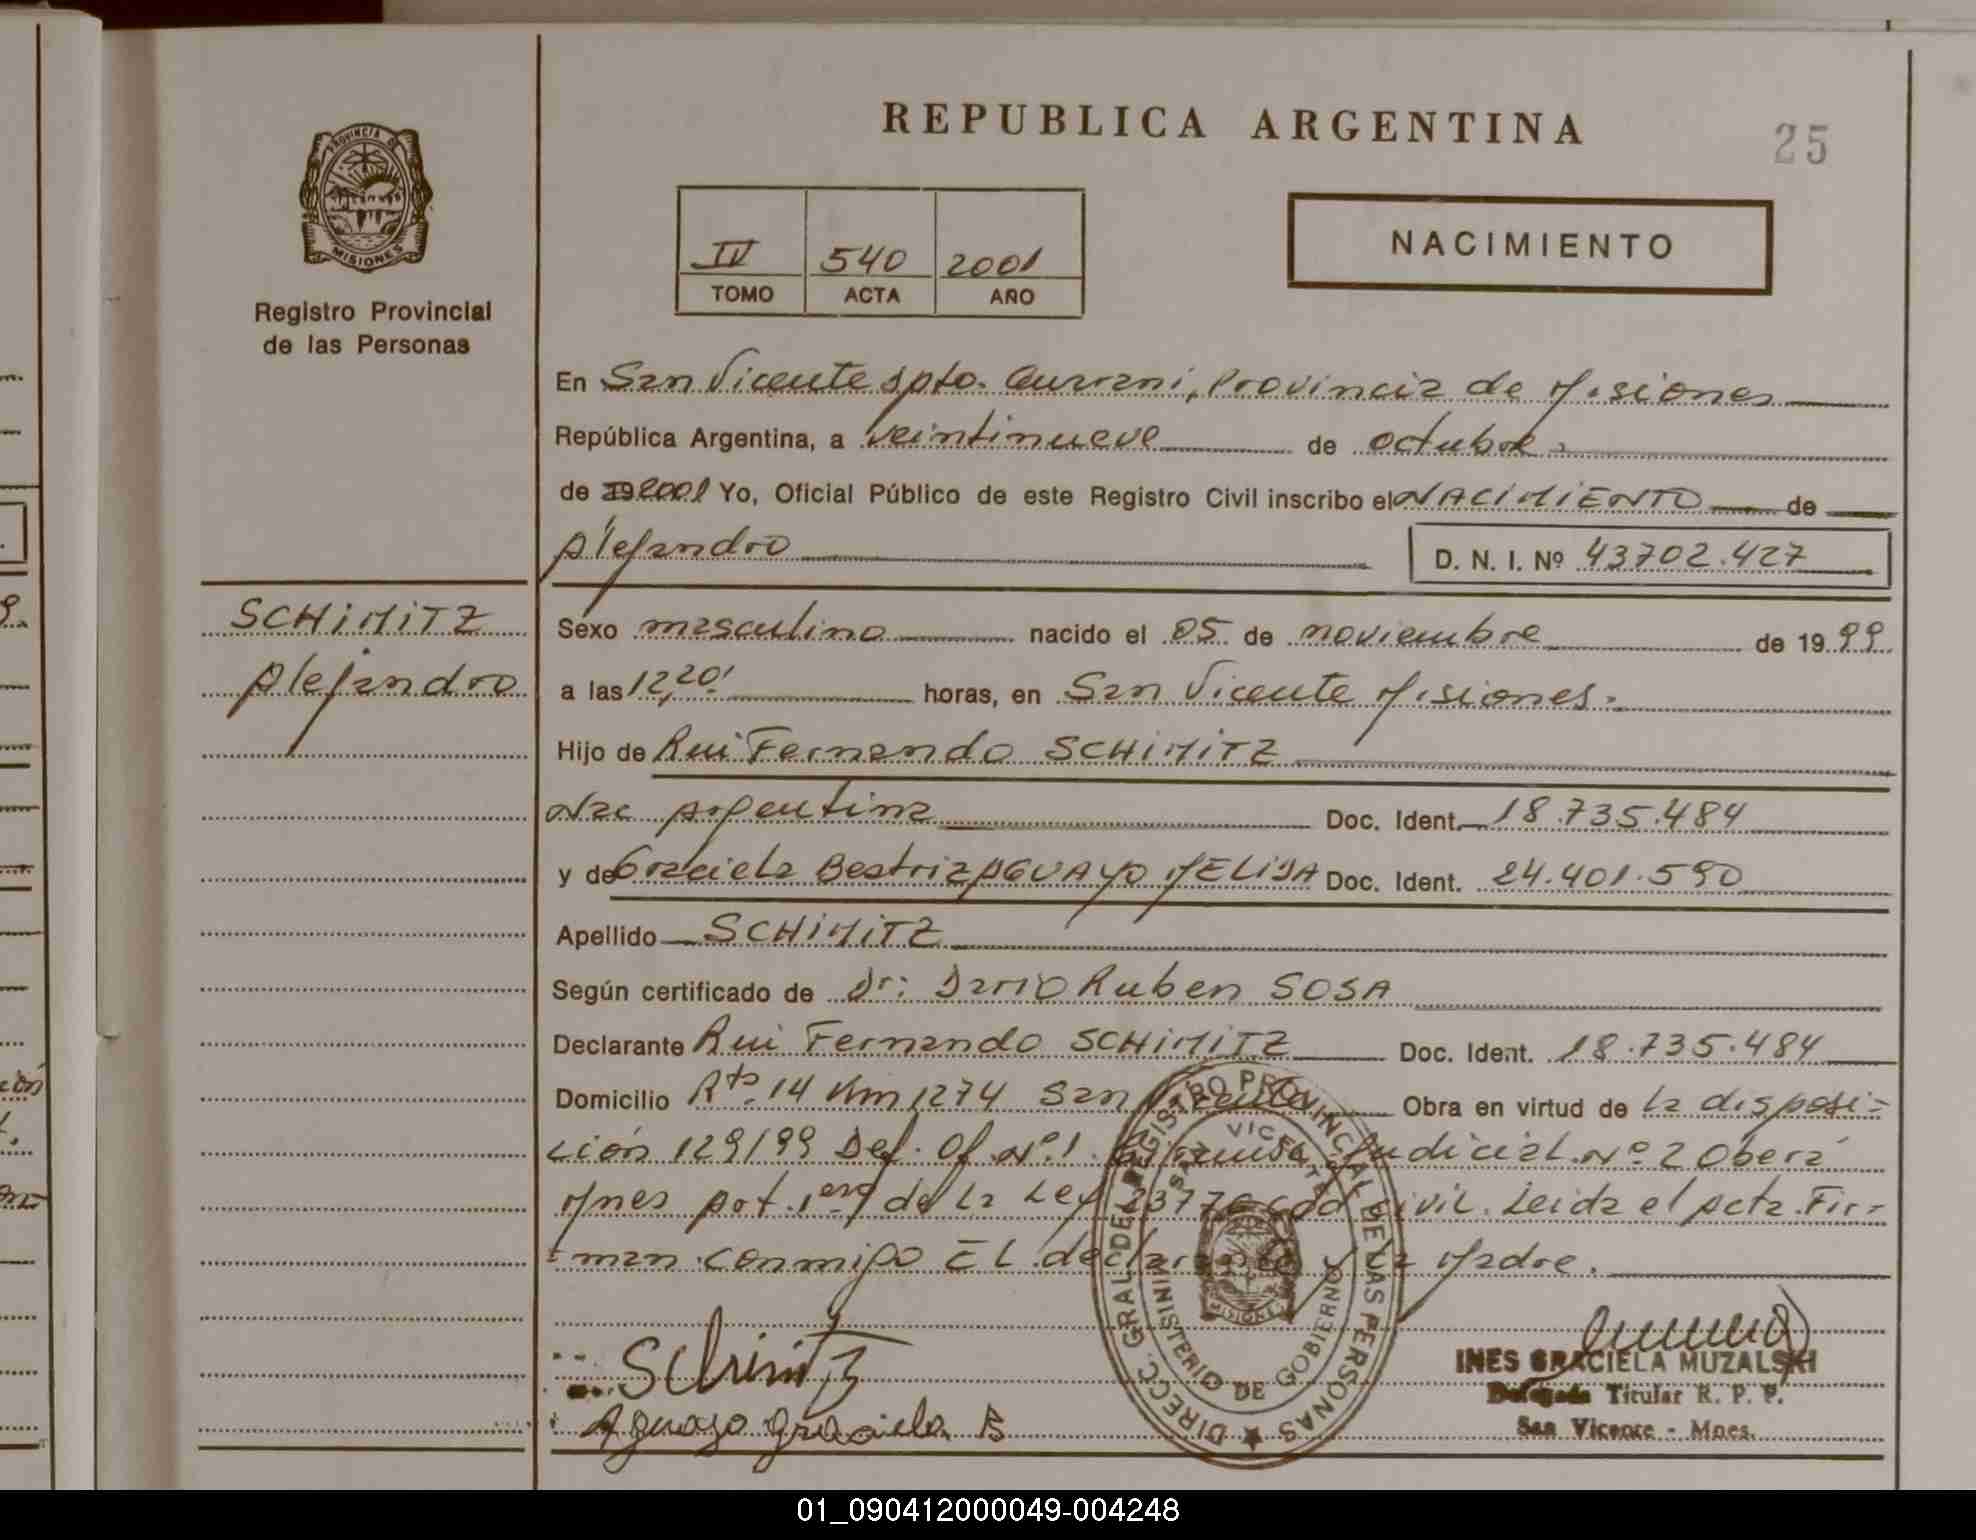 REPUBLICA ARGENTINA
25
PROVINCIA DE
MISIONES
Registro Provincial
de las Personas
IV 540 2001
TOMO ACTA AÑO
NACIMIENTO
En San Vicente Dpto. Guarani, Provincia de Misiones
República Argentina, a veintinueve de octubre
de 19 2001 Yo, Oficial Público de este Registro Civil inscribo el NACIMIENTO de
Alejandro
D. N. I. Nº 43702.427
SCHiMiTZ
Alejandro
Sexo masculino nacido el 05 de noviembre de 19 99
a las 12,20 horas, en San Vicente Misiones.
Hijo de Rui Fernando SCHiMiTZ
Nac Argentina Doc. Ident. 18.735.484
y de Graciela Beatriz AGUAYO MELIDA Doc. Ident. 24.401.590
Apellido SCHiMiTZ
Según certificado de Dr: Dario Ruben SOSA
Declarante Rui Fernando SCHiMiTZ Doc. Ident. 18.735.484
Domicilio Rta. 14 Km 1274 San Vicente Obra en virtud de la disposi=
ción 129/99 Def. Of. Nº 1 Judicial Nº 2 Oberá
Mnes de la Ley civil. Leida el Acta Fir-
=man conmigo EL declarante y la Madre.
DIRECC. GRAL. DEL REGISTRO PROVINCIAL DE LAS PERSONAS
SAN VICENTE
MINISTERIO DE GOBIERNO
MISIONES
Schimitz
Aguayo Graciela B
INES GRACIELA MUZALSKI
Delegada Titular R. P. P.
San Vicente - Mnes.
01_090412000049-004248